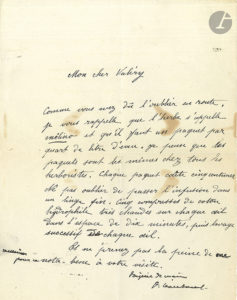 Mon cher Valéry
Comme vous avez dû l'oublier en route,
je vous rappelle que l'herbe s'appelle
et qu'il faut un paquet par
quart de litre d'eau. Je pense que les
paquets sont les mêmes chez tous les
herboristes. Chaque paquet coûte cinq centimes.
Ne pas oublier de passer l'infusion dans
un linge fin. Cinq compresses de coton
hydrophile très chaudes sur chaque œil
dans l'espace de dix minutes, puis lavage
successif chaque œil.
Et ne prenez pas la peine de me
nota-bene à votre visite.
Poignée de main